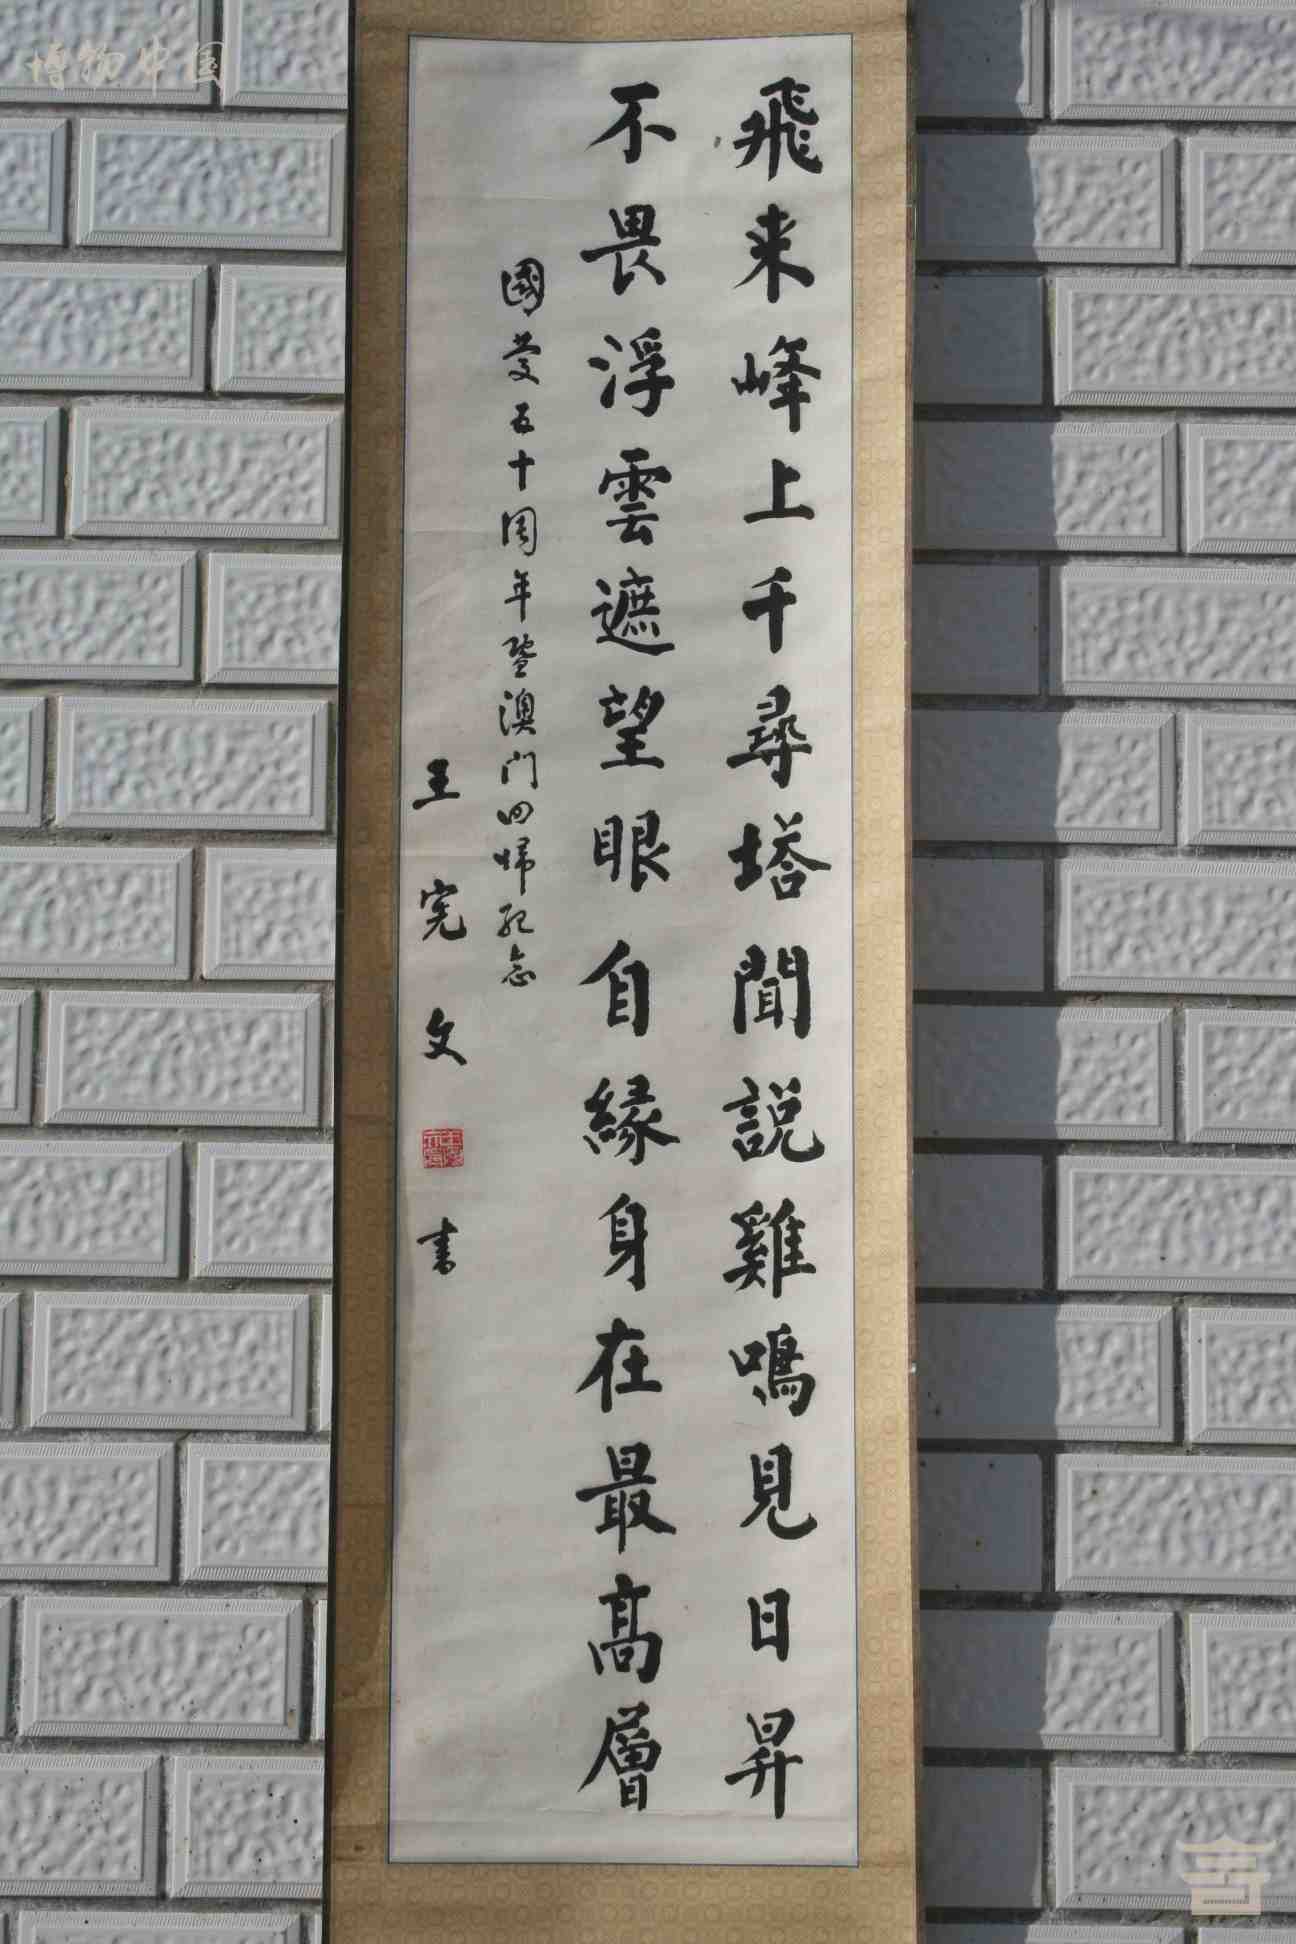 飛来峰上千尋塔聞説雞鳴見日昇
不畏浮雲遮望眼自緣身在最高層
國慶五十周年暨澳门回归紀念
王宪文書
博物中国